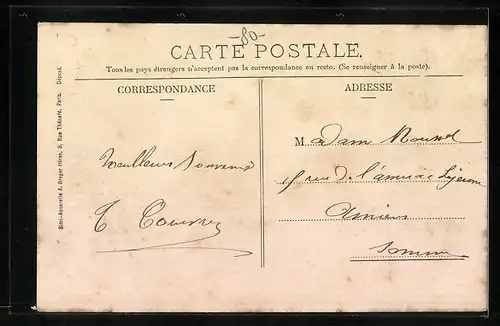 -80-
CARTE POSTALE.
Tous les pays étrangers n'acceptent pas la correspondance au recto. (Se renseigner à la poste).
CORRESPONDANCE
ADRESSE
Meilleurs Souvenirs
Madam
rue de l'amiral
Amiens
Somme
Simi-Aquarelle A. Breger Frères, 9, Rue Thénard, Paris. Déposé.